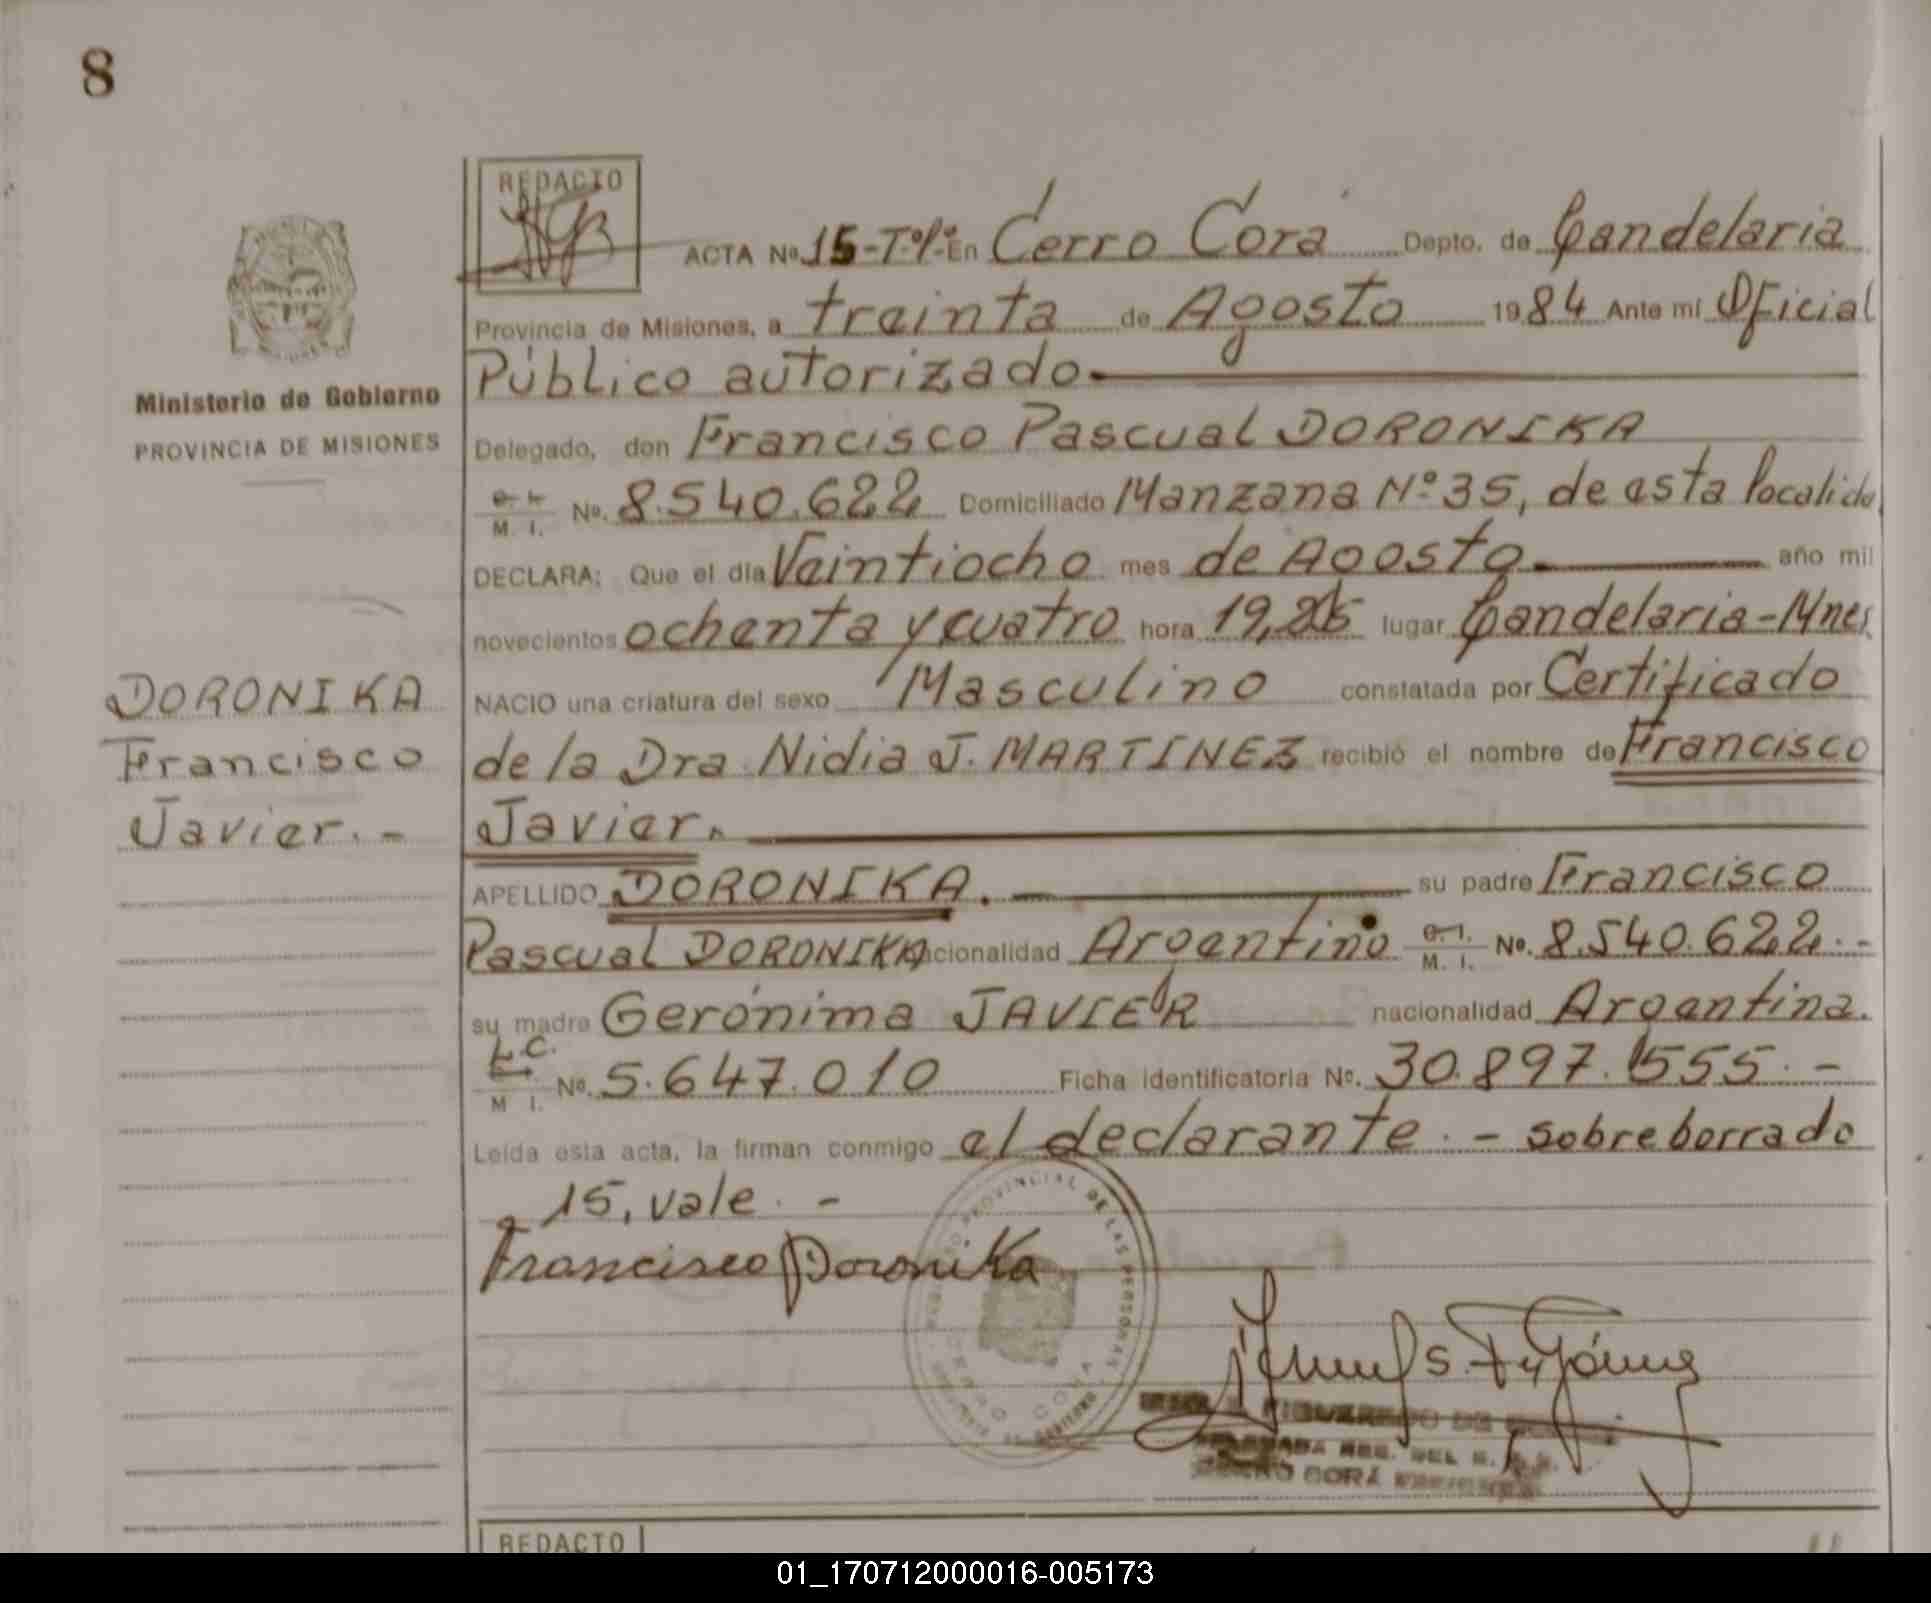 8
REDACTO
ACTA Nº 15-Tº1º- En Cerro Corá Depto. de Candelaria
Provincia de Misiones, a treinta de Agosto 1984 Ante mí Oficial
Público autorizado.
Ministerio de Gobierno
PROVINCIA DE MISIONES
Delegado, don Francisco Pascual DORONIKA
C. I. M. I. Nº. 8.540.622 Domiciliado Manzana Nº 35, de esta Localidad
DECLARA: Que el día Veintiocho mes de Agosto. año mil
novecientos ochenta y cuatro hora 19,25 lugar Candelaria-Mnes
NACIO una criatura del sexo Masculino constatada por Certificado
de la Dra. Nidia J. MARTINEZ recibió el nombre de Francisco
Javier.
DORONIKA
Francisco
Javier.-
APELLIDO DORONIKA. su padre Francisco
Pascual DORONIKA nacionalidad Argentino C. I. M. I. Nº. 8.540.622.-
su madre Gerónima JAVIER nacionalidad Argentina.
L.C. M I. Nº. 5.647.010 Ficha identificatoria Nº. 30.897.555.-
Leída esta acta, la firman conmigo el declarante.- sobreborrado
15, vale.-
Francisco Doronika
REGISTRO PROVINCIAL DE LAS PERSONAS
CERRO CORA
FIGUEREDO DE
DELEGADA REG. DEL
CERRO CORÁ
REDACTO
01_170712000016-005173